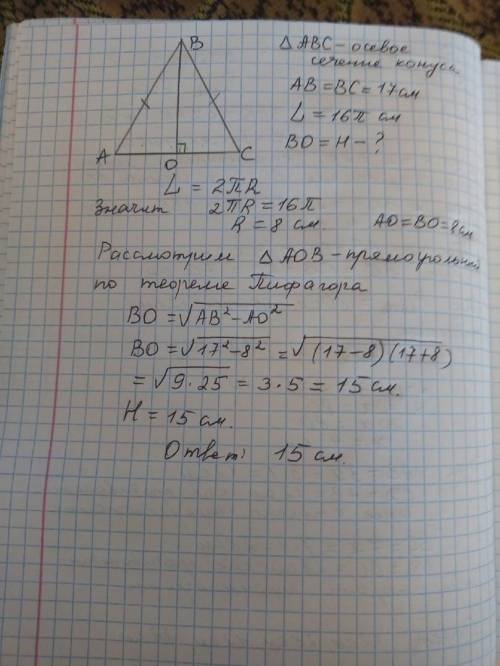 B
A
O
C
△ABC - осевое
сечение конуса
AB = BC = 17 см
L = 16π см
BO = H - ?
L = 2πR
Значит 2πR = 16π
R = 8 см. AO = BO = 8 см
Рассмотрим △AOB - прямоугольный
по теореме Пифагора
BO = √(AB² - AO²)
BO = √(17² - 8²) = √((17-8)(17+8))
= √(9·25) = 3·5 = 15 см.
H = 15 см.
Ответ: 15 см.